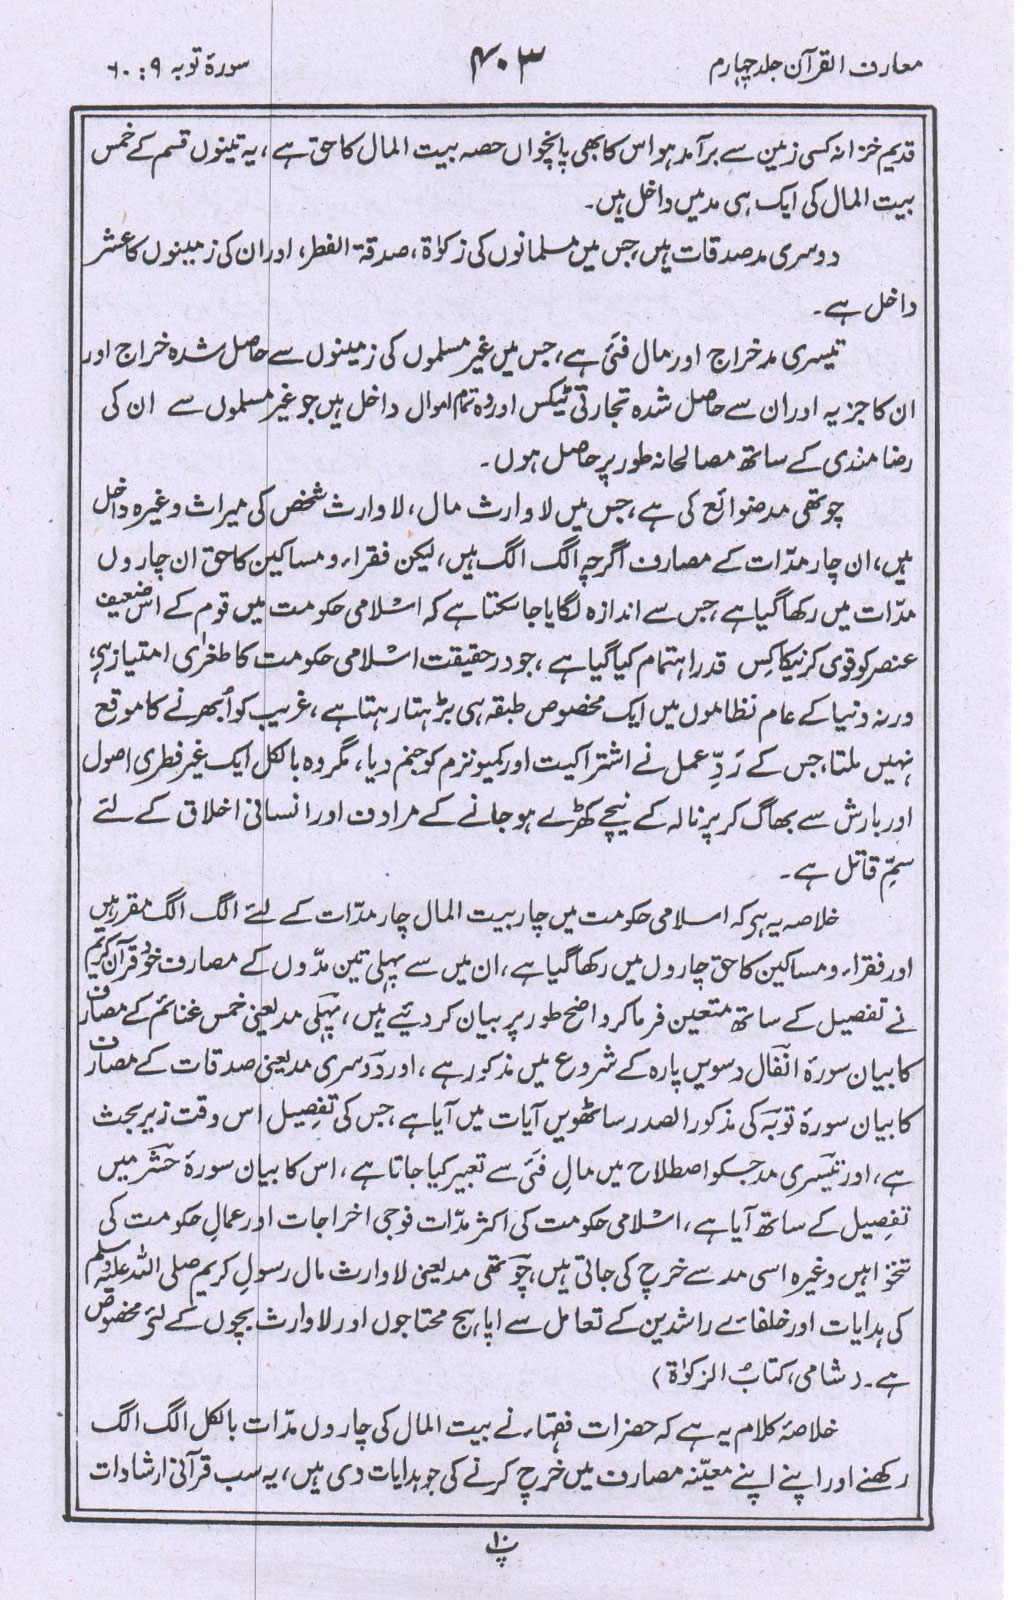 معارف القرآن جلد چہارم
۴۰۳
سورۂ توبہ ۹ : ۶۰
قدیم خزانہ کسی زمین سے برآمد ہو اس کا بھی پانچواں حصہ بیت المال کا حق ہے، یہ تینوں قسم کے خمس
بیت المال کی ایک ہی مد میں داخل ہیں۔
دوسری مد صدقات ہیں، جس میں مسلمانوں کی زکوٰۃ، صدقۃ الفطر، اور ان کی زمینوں کا عشر
داخل ہے۔
تیسری مد خراج اور مال فئی ہے، جس میں غیر مسلموں کی زمینوں سے حاصل شدہ خراج اور
ان کا جزیہ اور ان سے حاصل شدہ تجارتی ٹیکس اور وہ تمام اموال داخل ہیں جو غیر مسلموں سے ان کی
رضامندی کے ساتھ مصالحانہ طور پر حاصل ہوں۔
چوتھی مد ضوائع کی ہے، جس میں لاوارث مال، لاوارث شخص کی میراث وغیرہ داخل
ہیں، ان چار مدّات کے مصارف اگرچہ الگ الگ ہیں، لیکن فقراء و مساکین کا حق ان چاروں
مدّات میں رکھا گیا ہے، جس سے اندازہ لگایا جا سکتا ہے کہ اسلامی حکومت میں قوم کے اس ضعیف
عنصر کو قوی کرنیکا کِس قدر اہتمام کیا گیا ہے، جو در حقیقت اسلامی حکومت کا طغرٰی امتیاز ہی،
ورنہ دنیا کے عام نظاموں میں ایک مخصوص طبقہ ہی بڑہتا رہتا ہے، غریب کو اُبھرنے کا موقع
نہیں ملتا، جس کے رَدِّ عمل نے اشتراکیت اور کمیونزم کو جنم دیا، مگر وہ بالکل ایک غیر فطری اصول
اور بارش سے بھاگ کر پرنالہ کے نیچے کھڑے ہو جانے کے مرادف اور انسانی اخلاق کے لئے
سمِّ قاتل ہے۔
خلاصہ یہ ہی کہ اسلامی حکومت میں چار بیت المال چار مدّات کے لئے الگ الگ مقرر ہیں
اور فقراء و مساکین کا حق چاروں میں رکھا گیا ہے، ان میں سے پہلی تین مدّوں کے مصارف خود قرآن کریم
نے تفصیل کے ساتھ متعین فرما کر واضح طور پر بیان کر دئیے ہیں، پہلی مد یعنی خمس غنائم کے مصارف
کا بیان سورۂ انفال دسویں پارہ کے شروع میں مذکور ہے، اور دوسری مد یعنی صدقات کے مصارف
کا بیان سورۂ توبہ کی مذکور الصدر ساٹھویں آیات میں آیا ہے، جس کی تفصیل اس وقت زیر بحث
ہے، اور تیسری مد جسکو اصطلاح میں مالِ فئی سے تعبیر کیا جاتا ہے، اس کا بیان سورۂ حشر میں
تفصیل کے ساتھ آیا ہے، اسلامی حکومت کی اکثر مدّات فوجی اخراجات اور عمالِ حکومت کی
تنخواہیں وغیرہ اسی مد سے خرچ کی جاتی ہیں، چوتھی مد یعنی لاوارث مال رسول کریم صلی اللہ علیہ وسلم
کی ہدایات اور خلفائے راشدین کے تعامل سے اپاہج محتاجوں اور لاوارث بچوں کے لئے مخصوص
ہے۔ (شامی، کتابُ الزکوٰۃ)
خلاصۂ کلام یہ ہے کہ حضرات فقہاء نے بیت المال کی چاروں مدّات بالکل الگ الگ
رکھنے اور اپنے اپنے معیّنہ مصارف میں خرچ کرنے کی جو ہدایات دی ہیں، یہ سب قرآنی ارشادات
پ۱۰